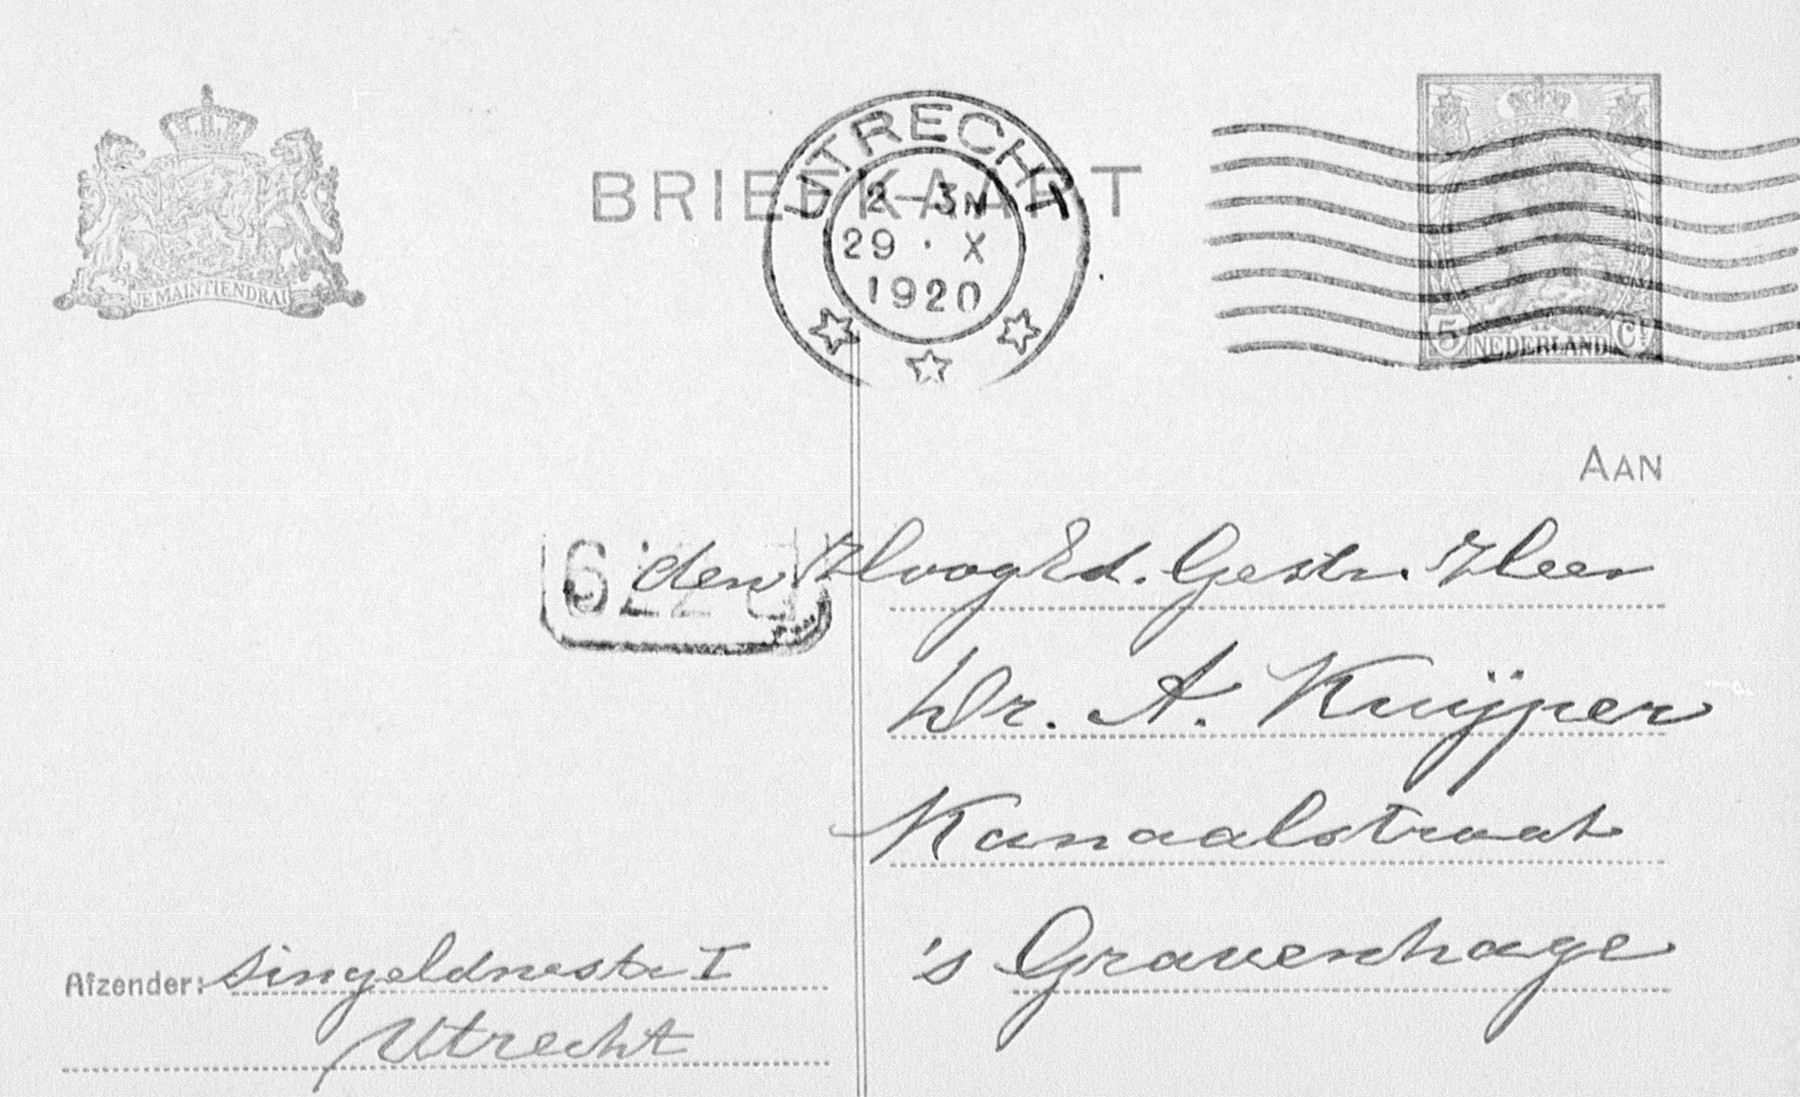 JE MAINTIENDRAI
BRIEFKAART
UTRECHT
2-3N
29 · X
1920
5 Ct
NEDERLAND
AAN
den HoogEd. Gestr. Heer
Dr. A. Kuijper
Kanaalstraat
's Gravenhage
Afzender:
Utrecht